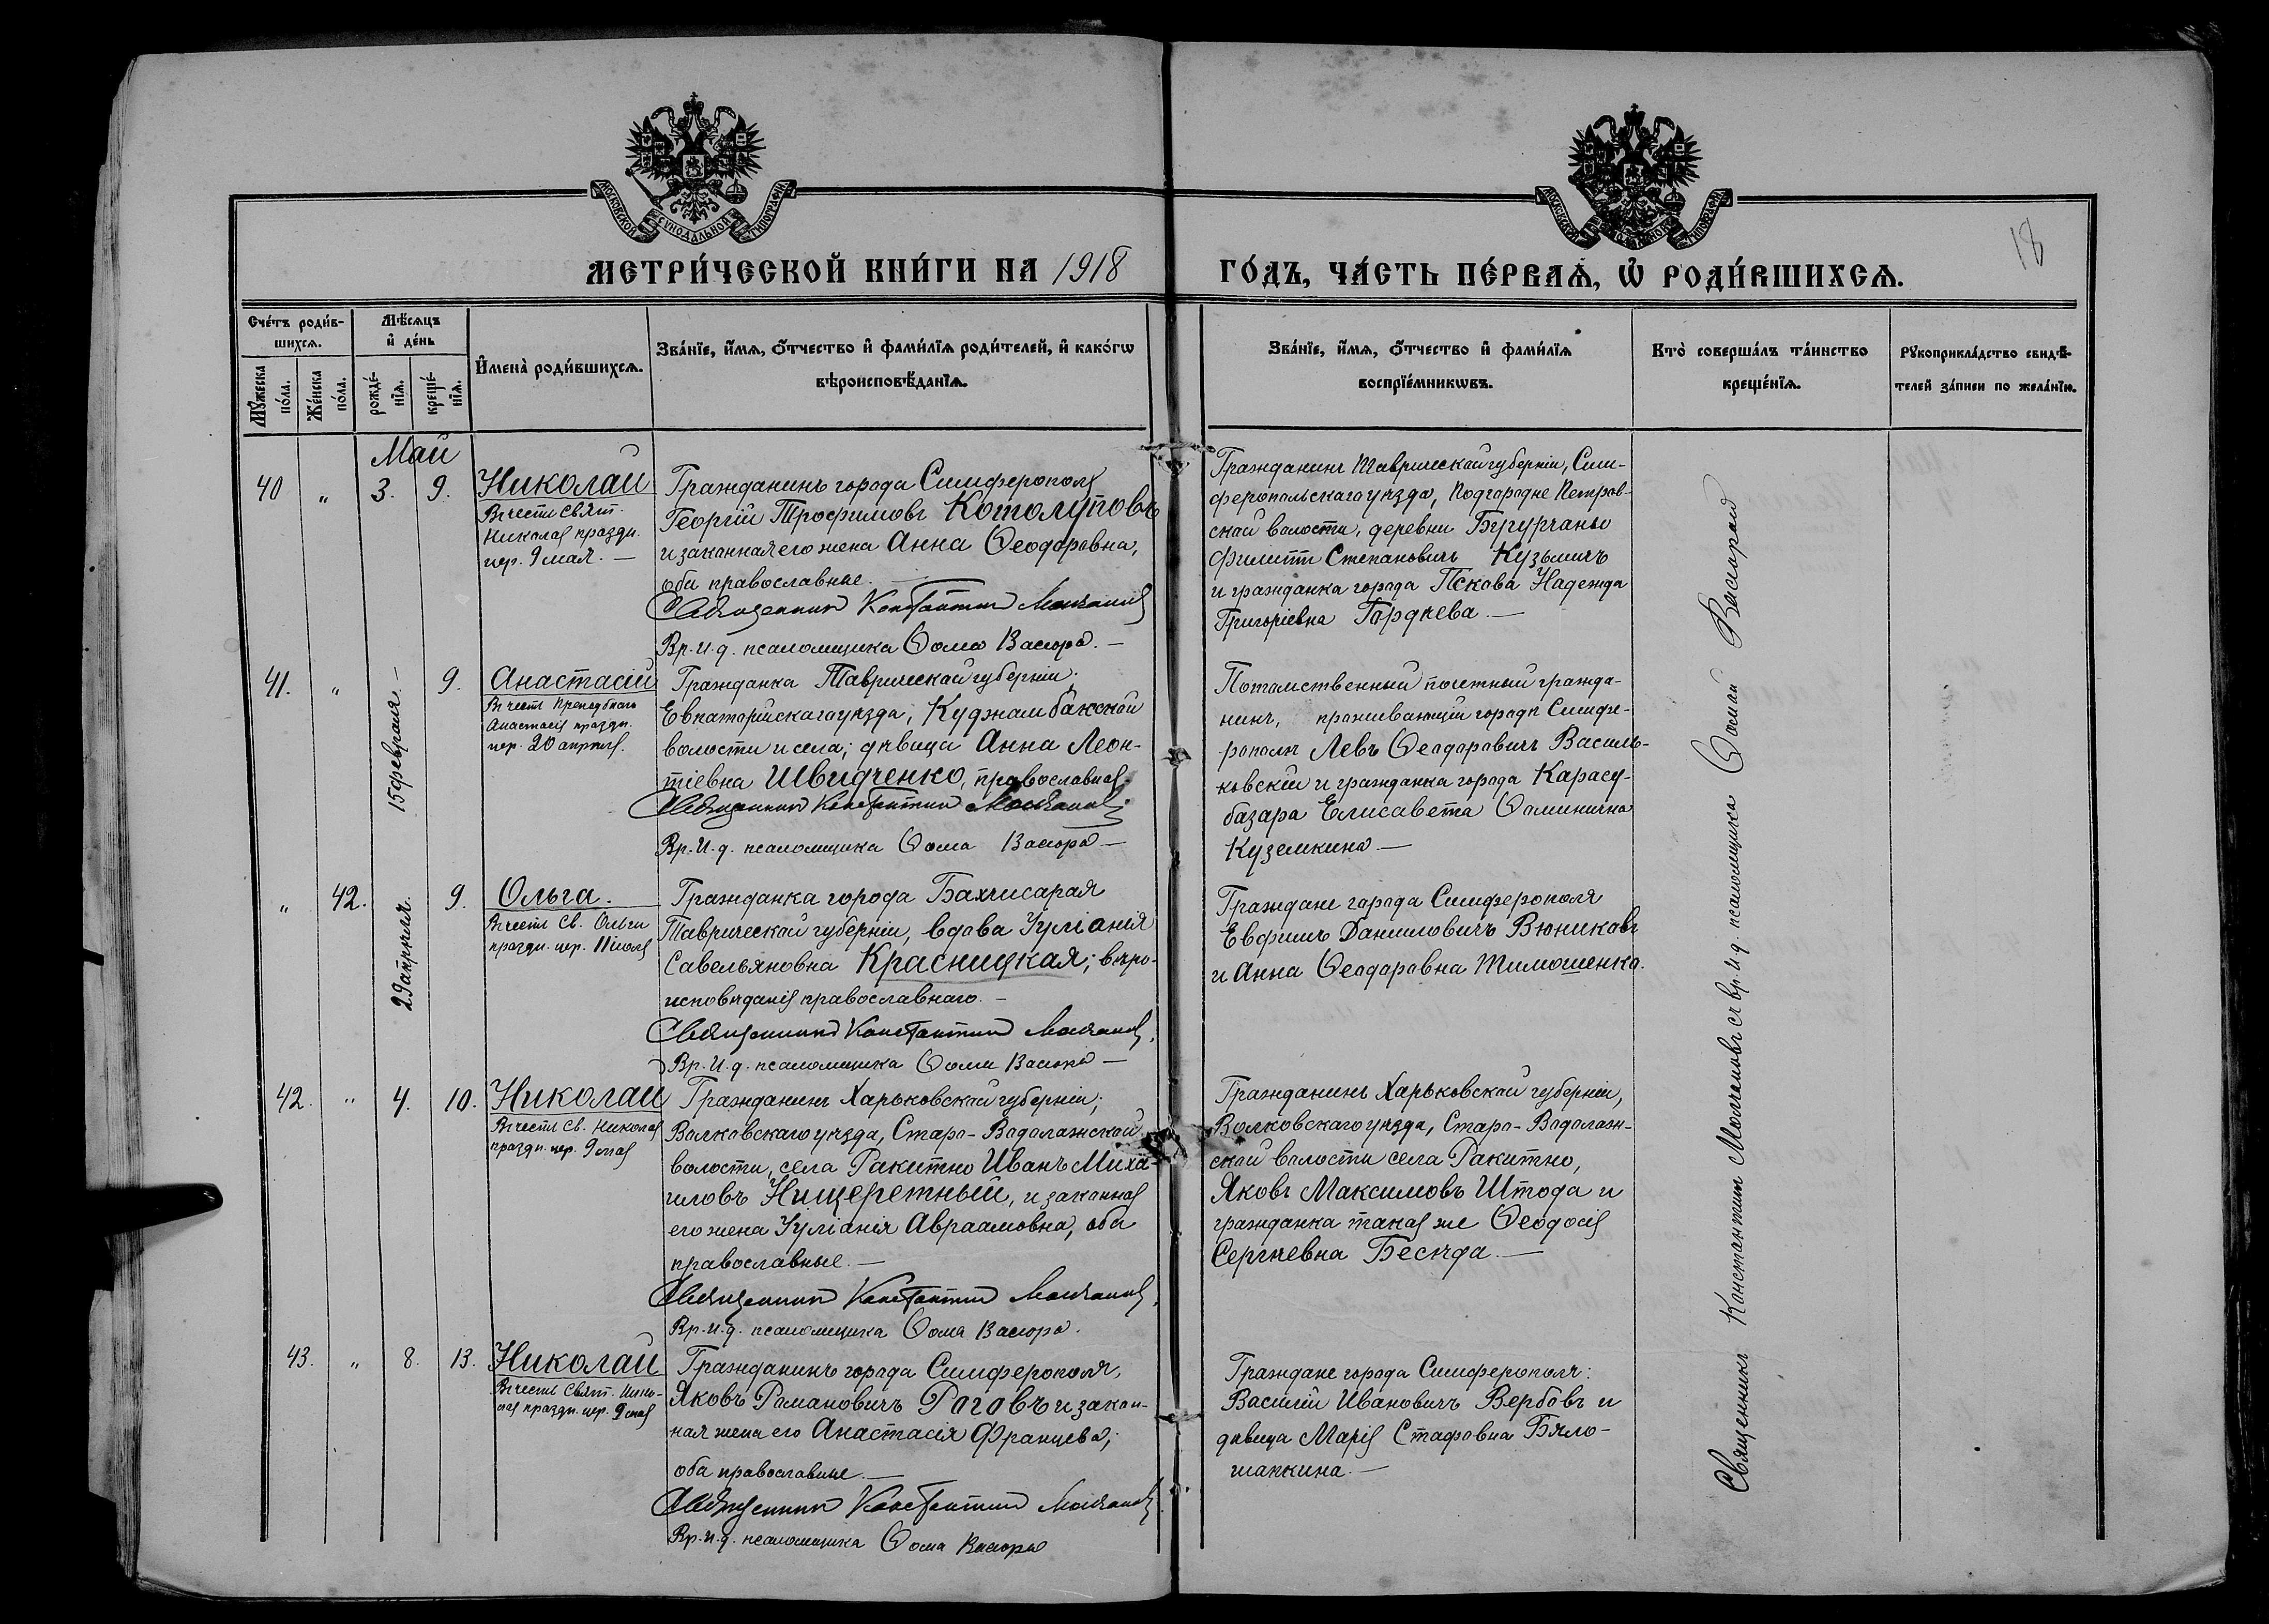 МОСКОВСКОЙ СѴНОДАЛЬНОЙ ТИПОГРАФІИ
МОСКОВСКОЙ СѴНОДАЛЬНОЙ ТИПОГРАФІИ
МЕТРИ́ЧЕСКОЙ КНИ́ГИ НА 1918
ГО́ДЪ, ЧА́СТЬ ПЕ́РВАѦ, Ѿ РОДИ́ВШИХСѦ.
18
Сче́тъ роди́в-
шихсѧ.
Мꙋ́жеска по́ла.
Же́нска по́ла.
Мѣ́сѧцъ
и҆ де́нь
рожде́-
нїѧ.
креще́-
нїѧ.
И҆мена̀ роди́вшихсѧ.
Зва́нїе, и҆́мѧ, ѻ҆́тчество и҆ фами́лїѧ роди́телей, и҆ како́гѡ
вѣроисповѣ́данїѧ.
Зва́нїе, и҆́мѧ, ѻ҆́тчество и҆ фами́лїѧ
воспрїе́мникѡвъ.
Кто̀ соверша́лъ та́инство
креще́нїѧ.
Рꙋкоприкла́дство свидѣ́-
телей за́писи по жела́нїю.
Май
40 " 3. 9.
Николай
Въ честь Свят.
Николая праздн.
чер. 9 мая. —
Гражданинъ города Симферополя
Георгій Трофимовъ Котолуповъ
и законная его жена Анна Ѳеодоровна,
оба православные. —
Священникъ Константинъ Молчановъ
Вр. и. д. псаломщика Ѳома Васюра. —
Гражданинъ Таврической губерніи, Сим-
феропольскаго уѣзда, Подгородне Петров-
ской волости, деревни Бугурчаны
Филиппъ Степановичъ Кузьмичъ
и гражданка города Пскова Надежда
Григоріевна Гордѣева. —
41. " 15 февраля. — 9.
Анастасій
Въ честь Преподобнаго
Анастасія праздн.
чер. 20 апрѣля.
Гражданка Таврической губерніи,
Евпаторійскаго уѣзда, Куджамбакской
волости и села; дѣвица Анна Леон-
тіевна Швидченко, православная.
Священникъ Константинъ Молчановъ
Вр. и. д. псаломщика Ѳома Васюра —
Потомственный почетный гражда-
нинъ, проживающій городѣ Симфе-
рополѣ Левъ Ѳеодоровичъ Василь-
ковскій и гражданка города Карасу-
базара Елисавета Ѳоминична
Куземкина —
" 42. 29 апрѣля. 9.
Ольга.
Въ честь Св. Ольги
праздн. чер. 11 іюля
Гражданка города Бахчисарая
Таврической губерніи, вдова Іуліанія
Савельяновна Красницкая; вѣро-
исповѣданія православнаго. —
Священникъ Константинъ Молчановъ.
Вр. и. д. псаломщика Ѳома Васюра —
Граждане города Симферополя
Евфимъ Даниловичъ Вюниковъ
и Анна Ѳеодоровна Тимошенко.
42. " 4. 10.
Николай
Въ честь Св. Николая
праздн. чер. 9 мая
Гражданинъ Харьковской губерніи,
Волковскаго уѣзда, Старо-Водолажской
волости, села Ракитно Иванъ Миха-
иловъ Нищеретный, и законная
его жена Іуліанія Авраамовна, оба
православные. —
Священникъ Константинъ Молчановъ.
Вр. и. д. псаломщика Ѳома Васюра.
Гражданинъ Харьковской губерніи,
Волковскаго уѣзда, Старо-Водолаж-
ской волости села Ракитно,
Яковъ Максимовъ Штода и
гражданка такая же Ѳеодосія
Сергѣевна Бесѣда. —
43. " 8. 13.
Николай
Въ честь Свят. Нико-
лая праздн. чер. 9 мая
Гражданинъ города Симферополя,
Яковъ Романовичъ Роговъ и закон-
ная жена его Анастасія Францева;
оба православные. —
Священникъ Константинъ Молчановъ
Вр. и. д. псаломщика Ѳома Васюра
Граждане города Симферополя:
Василій Ивановичъ Вербовъ и
дѣвица Марія Стафовна Бѣло-
шапкина. —
Священникъ Константинъ Молчановъ съ вр. и. д. псаломщика Ѳомой Васюрой